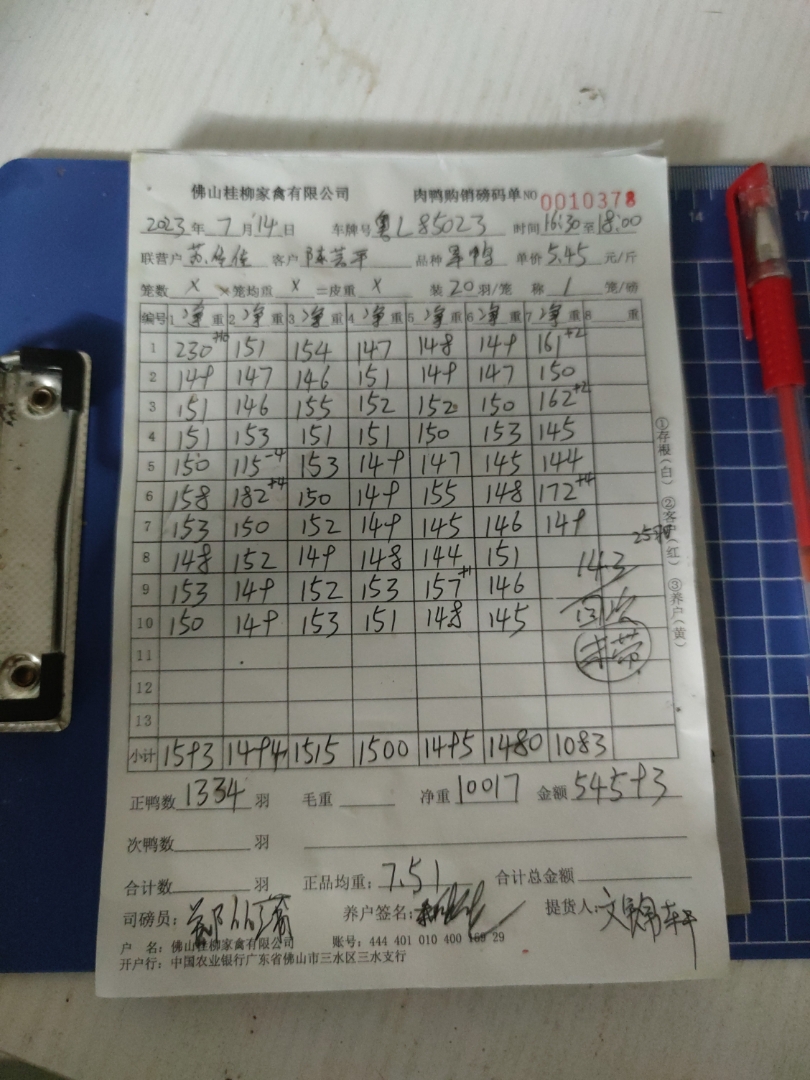 佛山桂柳家禽有限公司 肉鸭购销磅码单 NO 0010378
2023年 7月 14日 车牌号 粤L85023 时间 16:30 至 18:00
联营户 苏 客户 陈芸平 品种 单价 5.45 元/斤
笼数 x ×笼均重 x =皮重 x 装 20 羽/笼 称 1 笼/磅
编号 1 净重 2 净重 3 净重 4 净重 5 净重 6 净重 7 净重 8 重
1 230+10 151 154 147 148 149 161+2
2 149 147 146 151 149 147 150
3 151 146 155 152 152 150 162+2
4 151 153 151 151 150 153 145
5 150 115-4 153 149 147 145 144
6 158 182+4 150 149 155 148 172+4
7 153 150 152 149 145 146 149
8 148 152 149 148 144 151
9 153 149 152 153 157+1 146
10 150 149 153 151 148 145
11
12
13
143
小计 1593 1494 1515 1500 1495 1480 1083
正鸭数 1334 羽 毛重 净重 10017 金额 54593
次鸭数 羽
合计数 羽 正品均重: 7.51 合计总金额
司磅员: 养户签名: 提货人:
户 名: 佛山桂柳家禽有限公司 账号: 444 401 010 400 169 29
开户行: 中国农业银行广东省佛山市三水区三水支行
①存根(白) ②客户(红) ③养户(黄)
14